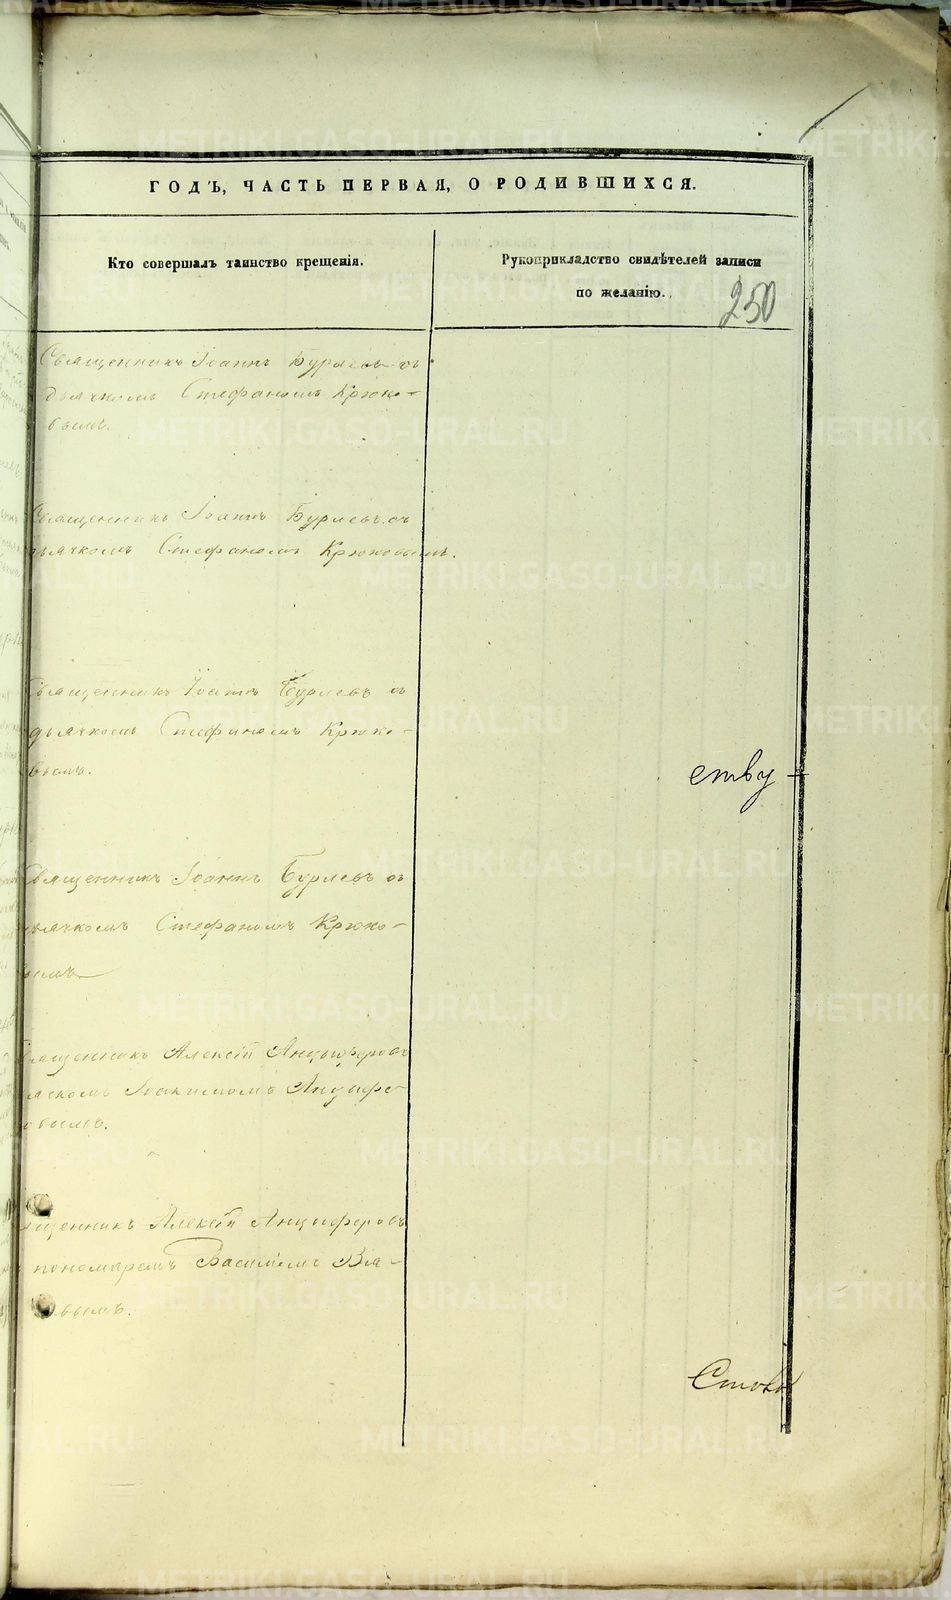 ГОДЪ, ЧАСТЬ ПЕРВАЯ, О РОДИВШИХСЯ.
Кто совершалъ таинство крещенія.
Рукоприкладство свидѣтелей записи
по желанію.
250
Священникъ Іоаннъ Бурлевъ съ
дьячкомъ Стефаномъ Крюко-
вымъ.
Священникъ Іоаннъ Бурлевъ съ
дьячкомъ Стефаномъ Крюковымъ.
Священникъ Іоаннъ Бурлевъ съ
дьячкомъ Стефаномъ Крюко-
вымъ.
ству
Священникъ Іоаннъ Бурлевъ съ
дьячкомъ Стефаномъ Крюко-
вымъ
Священникъ Алексій Анцыферовъ
дьячкомъ Іоакимомъ Анцыфе-
ровымъ.
Священникъ Алексій Анцыферовъ
пономаремъ Василіемъ
вымъ.
METRIKI.GASO-URAL.RU